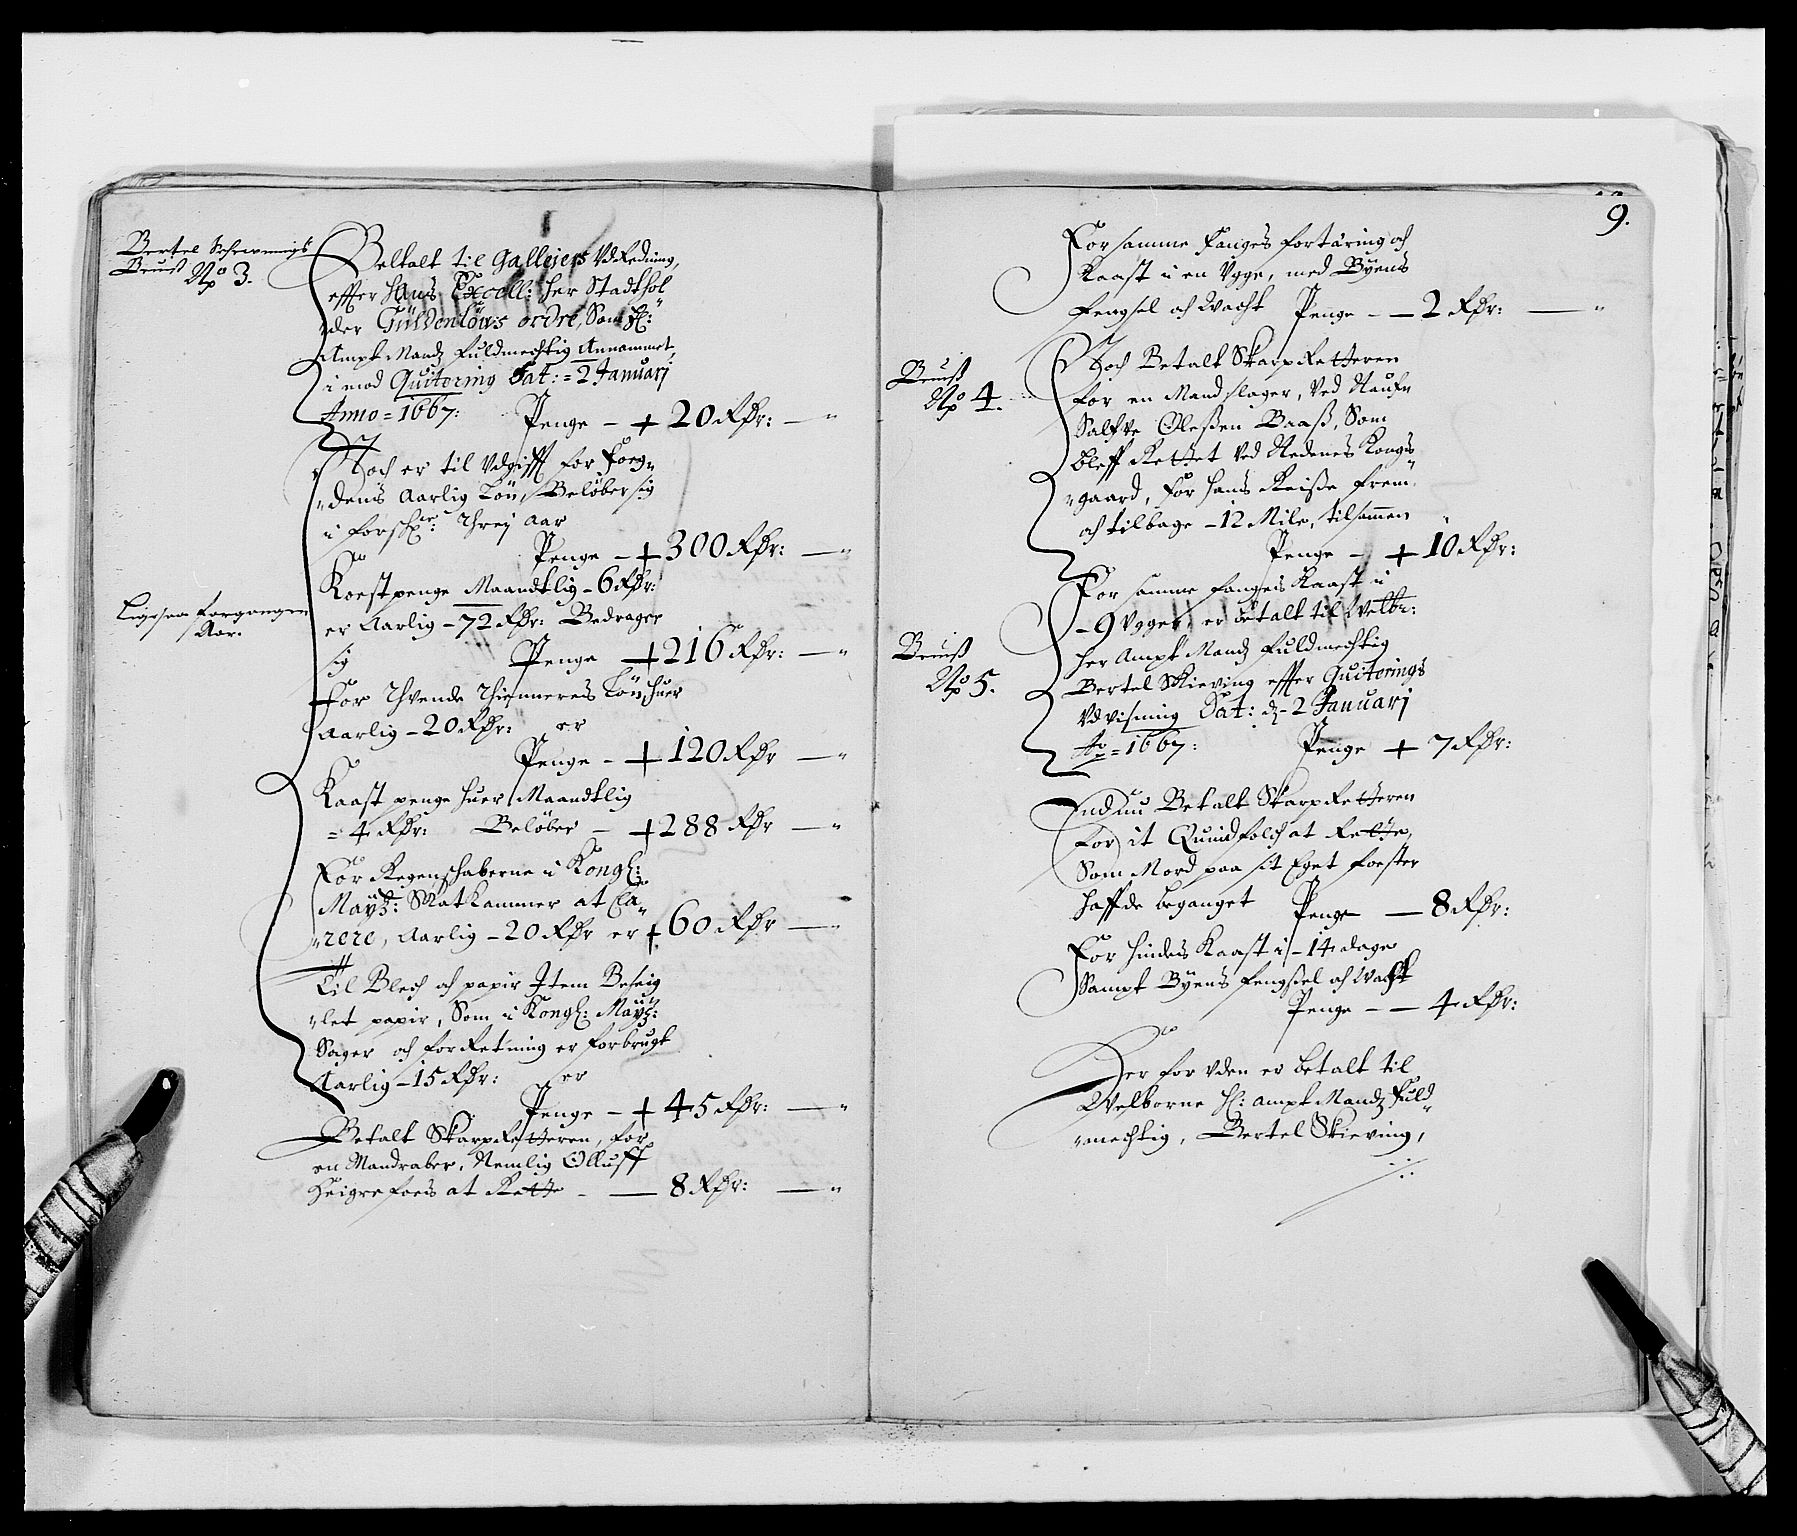 Bertel Schrevenigs
Beviiß
No 3.
Beltalt til Galleiers Vdredning,
effter Hans Excell: Her Stadthol
der Güldenlöws ordre, Som H:
Ampt Mandz fuldmechtig Annammet,
i mod Quitering Dat: = 2 Januarj
Anno = 1667: Penge - + 20 Rdr: — "
Noch er til Vdgifft for Foeg„
„dens Aarlig Lön, Beløber sig
i forschr: threj Aar
Penge - + 300 Rdr: — "
Koestpenge Maandtlig - 6 Rdr:
Ligesaa forgangen
Aar.
er Aarlig - 72 Rdr: Bedrager
sig Penge + 216 Rdr: — "
For thvende thienneres Lön, huer
Aarlig - 20 Rdr: er
Penge - + 120 Rdr — "
Kaast penge huer Maandtlig
= 4 Rdr: Beløber - + 288 Rdr — "
For Regenschaberne i Kongl:
Mayt: Skatkammer at Cla„
„rere, Aarlig - 20 Rdr er + 60 Rdr — "
Til Blech och papir Item Beseig
„let papir, Som i Kongl: Maytz:
Sager och forretning er forbrugt
Aarlig - 15 Rdr: er
Penge - + 45 Rdr: — "
Betalt Skarpretteren, for
en Mandraber, Nemlig Olluff
Heigrefoes at Rette - — 8 Rdr: — "
9.
For samme Fanges fortäring och
Kaast i en Vgge, med Byens
fengsel och Wacht Penge - — 2 Rdr: — "
Beviiß
No 4.
Noch Betalt Skarpretteren
for en Mandslager, Ved Naufn
Salfve Oleßen Baaß, Som
bleff Rettet Ved Nedenes Kongs
„gaard, for hans Reiße frem
och tilbage - 12 Mile, tilsammen
Penge - + 10 Rdr:
For samme fangens Kaast i
- 9 Vgger, er betalt til Welbr:
Beviiß
No 5.
Her Ampt Mandz fuldmechtig
Bertel Skieving effter Quiterings
Vdvisning Dat: d - 2 Januarj
Ao = 1667: Penge + 7 Rdr:
Endnu Betalt Skarpretteren
for it Quindfolch at Rette,
Som Mord paa sit Eget foester
haffde beganget Penge — 8 Rdr:
For hindes Kaast i - 14 dage
Sampt Byens fengßel och Wacht
Penge - — 4 Rdr:
Der for vden er betalt til
Welborne H: ampt Mandz fuld
„mechtig, Bertel Skieving,